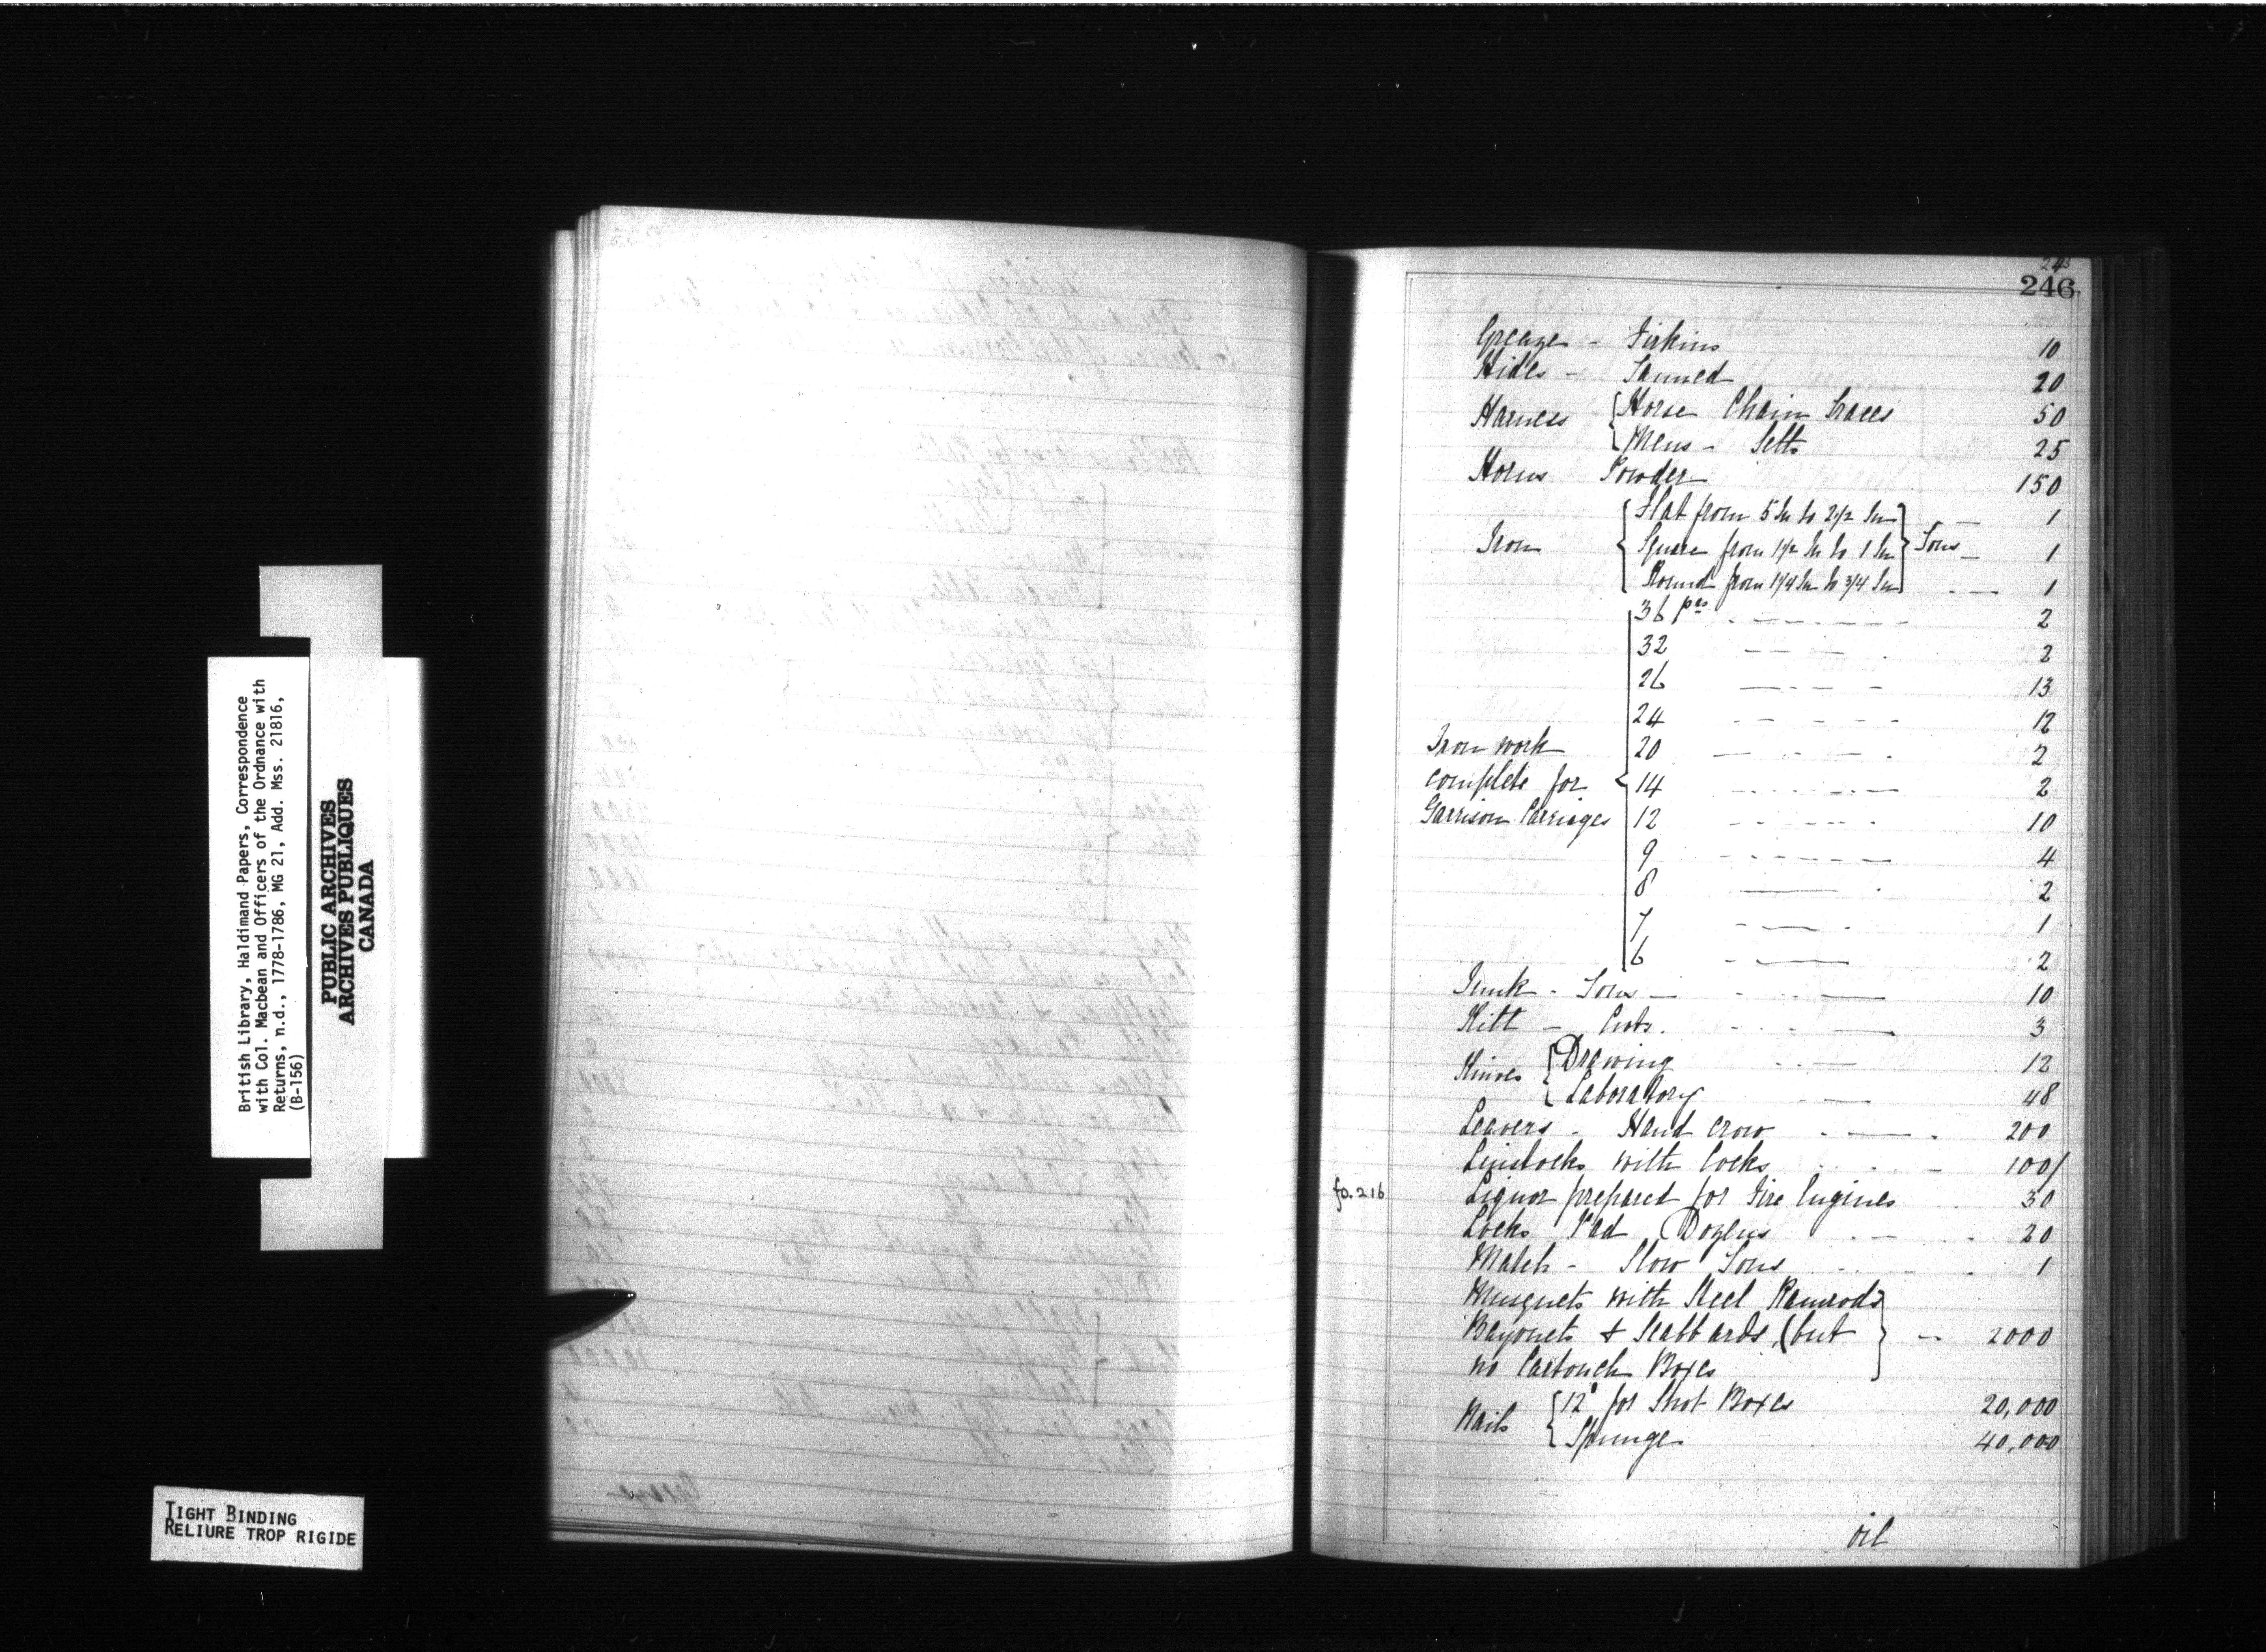 British Library, Haldimand Papers, Correspondence
with Col. Macbean and Officers of the Ordnance with
Returns, n.d., 1778-1786, MG 21, Add. Mss. 21816,
(B-156)
PUBLIC ARCHIVES
ARCHIVES PUBLIQUES
CANADA
TIGHT BINDING
RELIURE TROP RIGIDE
246
Greaze - Firkins 10
Hides - Tanned 20
Harness { Horse Chain Traces 50
{ Mens - Setts 25
Horns Powder 150
{ Flat from 5 In to 2 1/2 In } — 1
Iron { Square from 1 1/2 In to 1 In } Tons — 1
{ Round from 1 1/4 In to 3/4 In } — 1
36 prs 2
32 2
26 13
24 12
Iron work 20 2
complete for { 14 2
Garrison Carriages 12 10
9 4
8 2
7 1
6 2
Junk - Tons — 10
Kitt — 3
Knives { Drawing 12
{ Laboratory 48
Leavers - Hand crow 200
Linstocks with Cocks 100/
fo. 216 Liquor prepared for Fire Engines 30
Locks Pad Dozens 20
Match - Slow Tons 1
Musquets with Steel Ramrods }
Bayonets & Scabbards, (but } — 2000
no Cartouch Boxes }
Nails { 12d for Shot Boxes 20,000
{ Spunge 40,000
oil